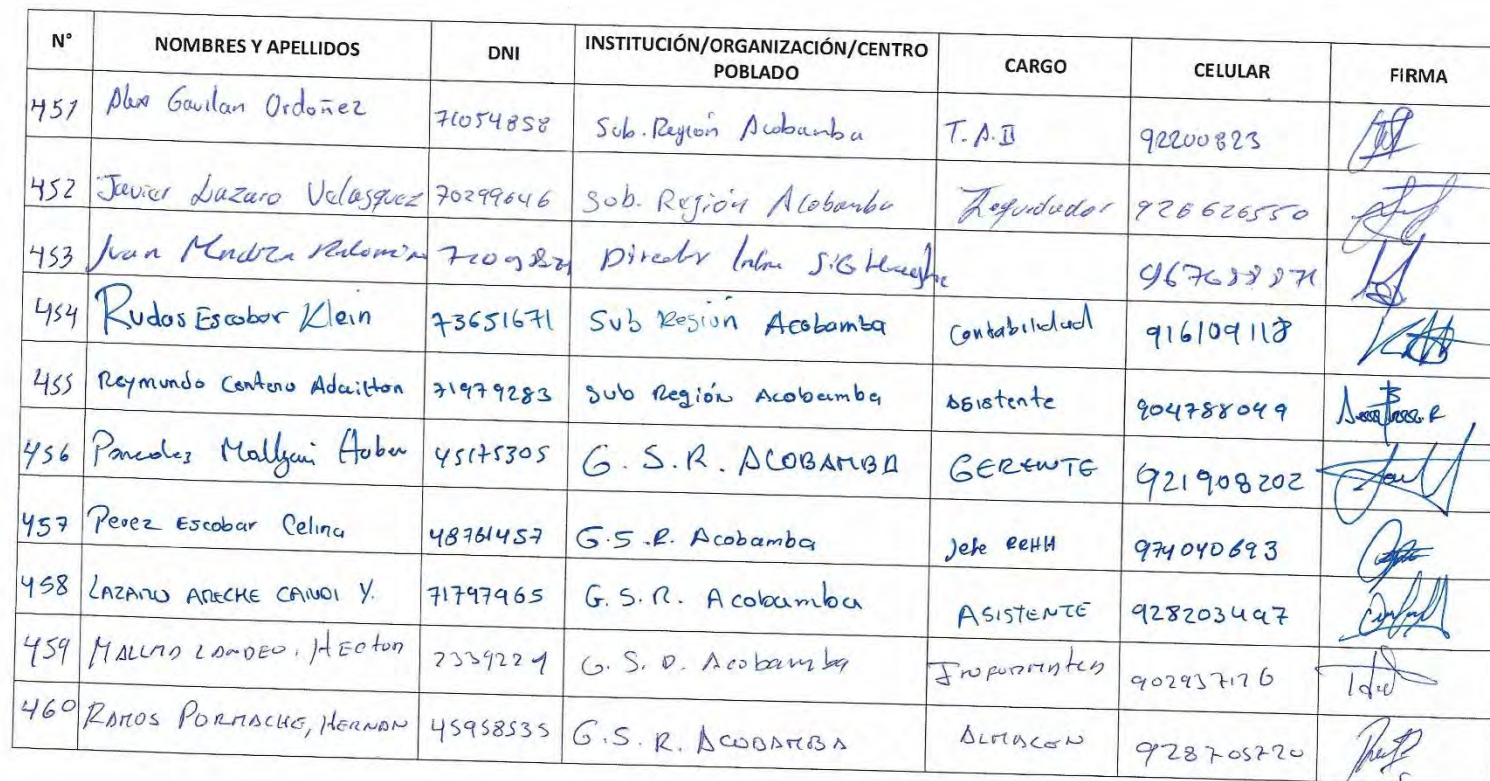 N° NOMBRES Y APELLIDOS DNI INSTITUCIÓN/ORGANIZACIÓN/CENTRO POBLADO CARGO CELULAR FIRMA
451 Alex Gavilan Ordoñez 71054858 Sub. Región Acobamba T.A.II 92200823
452 Javier Lazaro Velasquez 70299646 Sub. Región Acobamba 926626550
453 Ivan Director
454 Rudas Escobar Klein 73651671 Sub Region Acobamba Contabilidad 916109118
455 Reymundo Centeno Adailton 71979283 Sub Región Acobamba Asistente 904788049
456 45175305 G. S.R. ACOBAMBA GERENTE 921908202
457 Perez Escobar Celina 48761457 G.S.R. Acobamba Jefe RRHH 974040693
458 LAZARO ARECHE CANDI Y. 71797965 G. S. R. Acobamba ASISTENTE 928203497
459 LANDEO, HECTOR G. S. R. Acobamba 902937126
460 RAMOS PORMACHE, HERNAN 45958535 G.S. R. ACOBAMBA ALMACEN 928705720